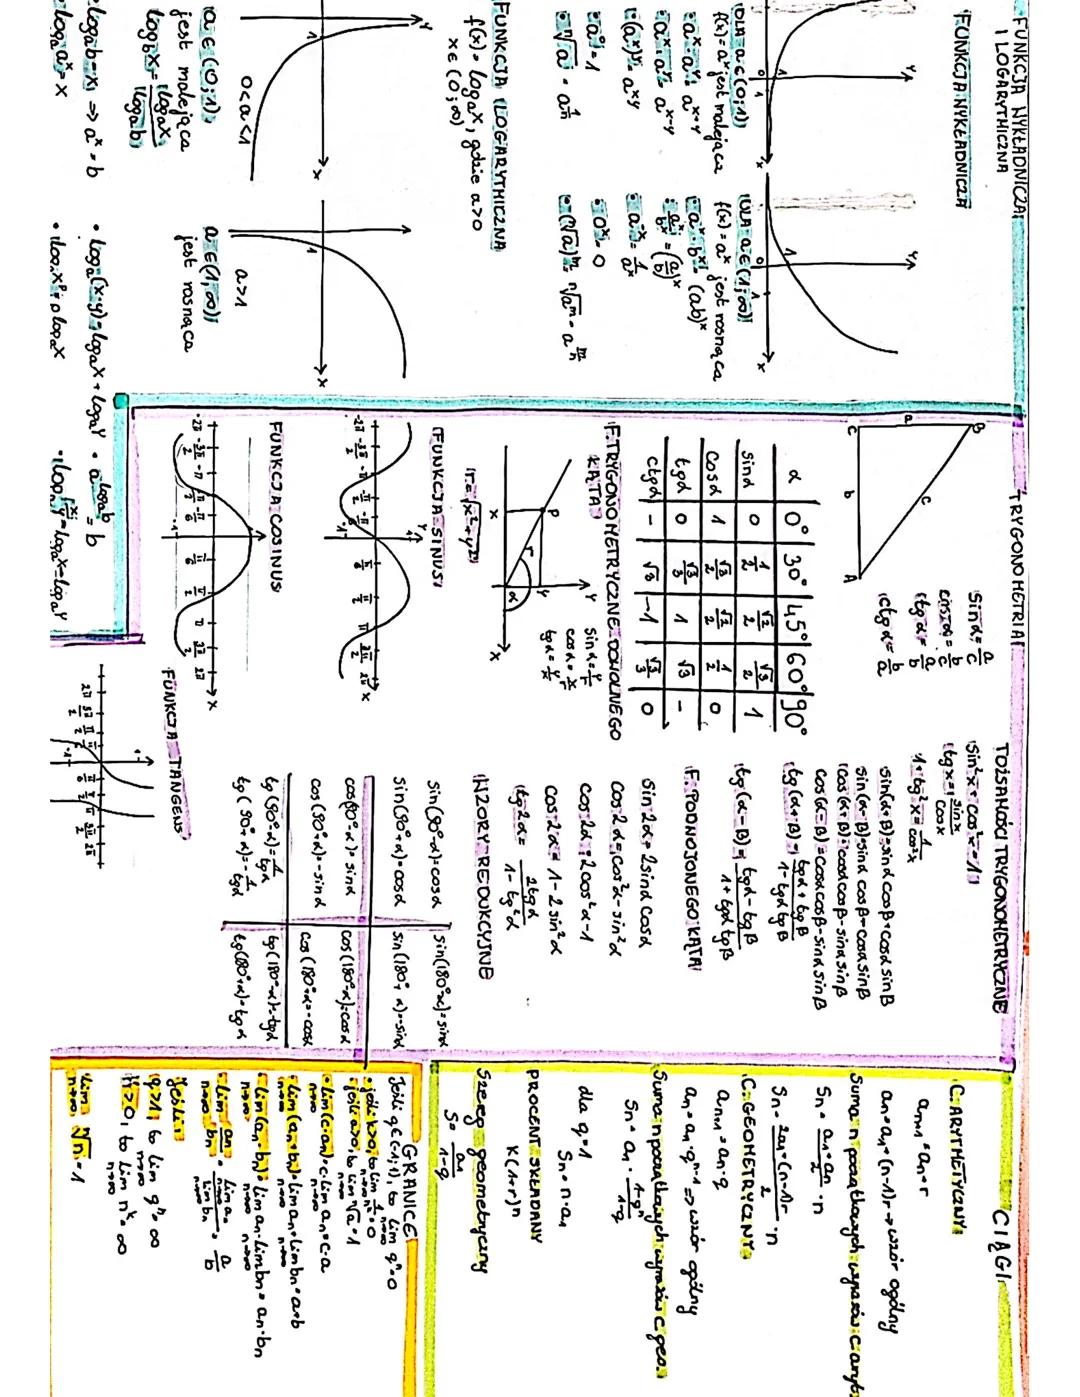 FUNKCJA WYKŁADNICZA
I LOGARYTMICZNA
FUNKCJA WYKŁADNICZA
DLA a∈(0;1)
f(x)=aˣ jest malejąca
DLA a∈(1;∞)
f(x)=aˣ jest rosnąca
aˣ·bˣ=(ab)ˣ
aˣ:aʸ=aˣ⁻ʸ
aˣ/bˣ=(a/b)ˣ
(aˣ)ʸ=aˣʸ
a⁻ˣ=1/aˣ
a⁰=1
0ˣ=0
ⁿ√a=a^(1/n)
(ⁿ√a)ᵐ=ⁿ√aᵐ=a^(m/n)
FUNKCJA LOGARYTMICZNA
f(x)=logₐx, gdzie a>0
x∈(0;∞)
0<a<1
a>1
a∈(0;1)
jest malejąca
a∈(1;∞)
jest rosnąca
log_b x=logₐx/logₐb
• logₐb=x ⇒ aˣ=b
• logₐ(x·y)=logₐx+logₐy
• a^(logₐb)=b
• logₐaˣ=x
• logₐxᵖ=p logₐx
• logₐ x/y=logₐx-logₐy
TRYGONOMETRIA
B
a
c
C
b
A
sinα=a/c
cosα=b/c
tgα=a/b
ctgα=b/a
α | 0° | 30° | 45° | 60° | 90°
sinα | 0 | 1/2 | √2/2 | √3/2 | 1
cosα | 1 | √3/2 | √2/2 | 1/2 | 0
tgα | 0 | √3/3 | 1 | √3 | -
ctgα | - | √3 | 1 | √3/3 | 0
F. TRYGONOMETRYCZNE DOWOLNEGO
KĄTA
sinα=y/r
cosα=x/r
tgα=y/x
r=√x²+y²
FUNKCJA SINUS
FUNKCJA COSINUS
FUNKCJA TANGENS
TOŻSAMOŚCI TRYGONOMETRYCZNE
sin²x+cos²x=1
tgx=sinx/cosx
1+tg²x=1/cos²x
sin(α+β)=sinα cosβ+cosα sinβ
sin(α-β)=sinα cosβ-cosα sinβ
cos(α+β)=cosα cosβ-sinα sinβ
cos(α-β)=cosα cosβ-sinα sinβ
tg(α+β)=tgα+tgβ/1-tgα tgβ
tg(α-β)=tgα-tgβ/1+tgα tgβ
F. PODWOJONEGO KĄTA
sin2α=2sinα cosα
cos2α=cos²α-sin²α
cos2α=2cos²α-1
cos2α=1-2sin²α
tg2α=2tgα/1-tg²α
WZORY REDUKCYJNE
sin(90°-α)=cosα
sin(180°-α)=sinα
sin(90°+α)=cosα
sin(180°+α)=-sinα
cos(90°-α)=sinα
cos(180°-α)=cosα
cos(90°+α)=-sinα
cos(180°+α)=-cosα
tg(90°-α)=1/tgα
tg(180°-α)=-tgα
tg(90°+α)=-1/tgα
tg(180°+α)=tgα
CIĄGI
C. ARYTMETYCZNY
aₙ₊₁=aₙ+r
aₙ=a₁+(n-1)r → wzór ogólny
Suma n początkowych wyrazów c. aryt.
Sₙ=a₁+aₙ/2·n
Sₙ=2a₁+(n-1)r/2·n
C. GEOMETRYCZNY
aₙ₊₁=aₙ·q
aₙ=a₁·qⁿ⁻¹ ⇒ wzór ogólny
Suma n początkowych wyrazów c. geo.
Sₙ=a₁·1-qⁿ/1-q
dla q=1
Sₙ=n·a₁
PROCENT SKŁADANY
K(1+r)n
Szereg geometryczny
S=a₁/1-q
GRANICE
Jeśli q∈(-1;1), to lim qⁿ=0
n→∞
• jeśli k>0, to lim 1/nᵏ=0
n→∞
• jeśli a>0, to lim ⁿ√a=1
n→∞
• lim(c·aₙ)=c·lim aₙ=c·a
n→∞
• lim(aₙ+bₙ)=lim aₙ+lim bₙ=a+b
n→∞
• lim(aₙ·bₙ)=lim aₙ·lim bₙ=aₙ·bₙ
n→∞
• lim aₙ/bₙ=lim aₙ/lim bₙ=a/b
n→∞
Jeśli
q>1 to lim qⁿ=∞
n→∞
k>0, to lim nᵏ=∞
n→∞
lim ⁿ√n=1
n→∞